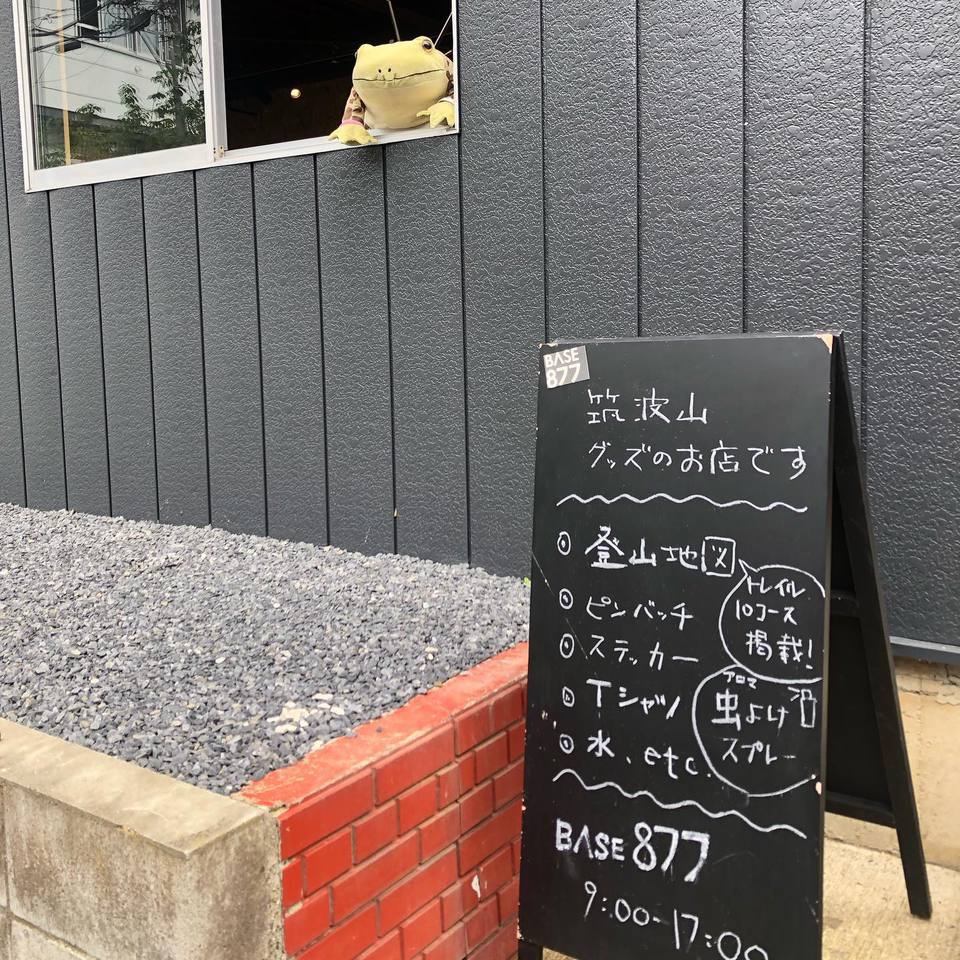 BASE
877
筑波山
グッズのお店です
登山地図
トレイル
10コース
掲載!
ピンバッチ
ステッカー
Tシャツ
水、etc.
アロマ
虫よけ
スプレー
BASE 877
9:00-17:00